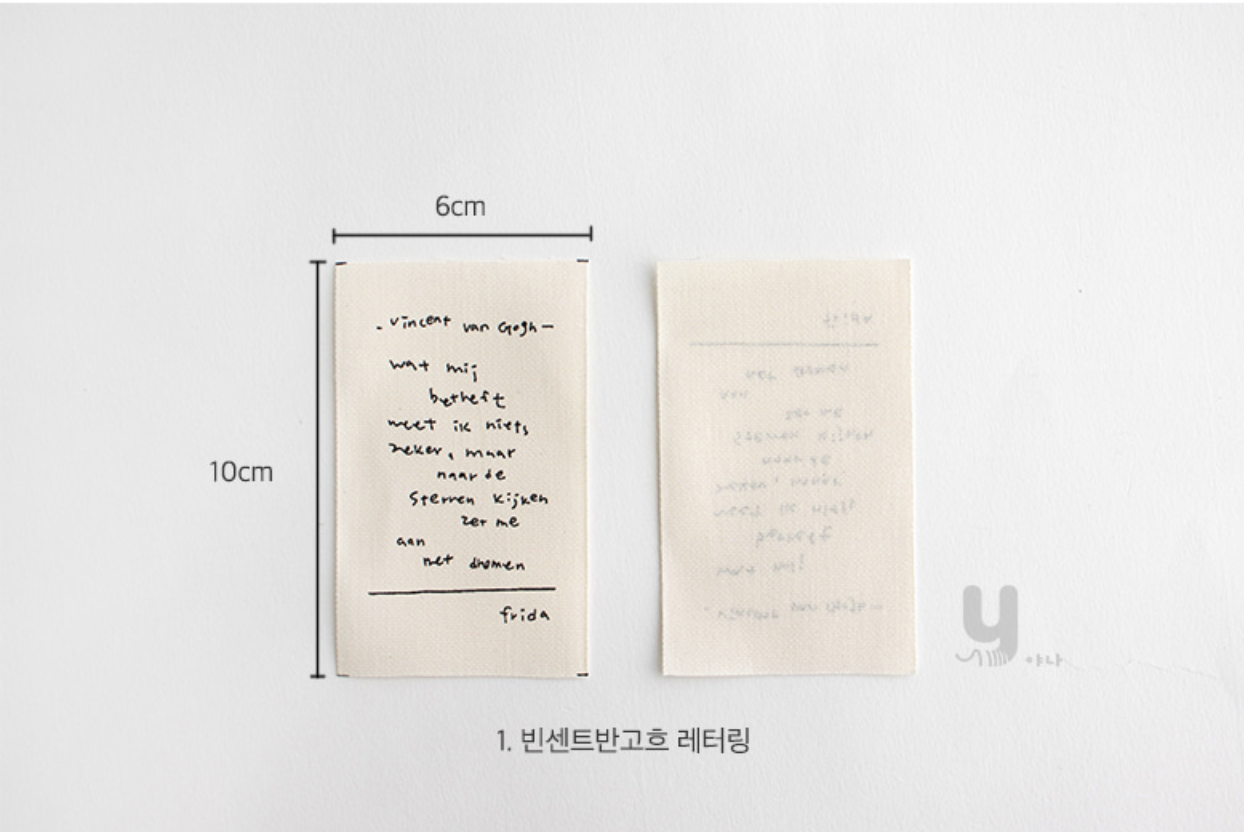 6cm
10cm
- vincent van Gogh —
wat mij
betreft
weet ik niets
zeker, maar
naar de
sterren kijken
zet me
aan
met dromen
frida
y
야나
1. 빈센트반고흐 레터링